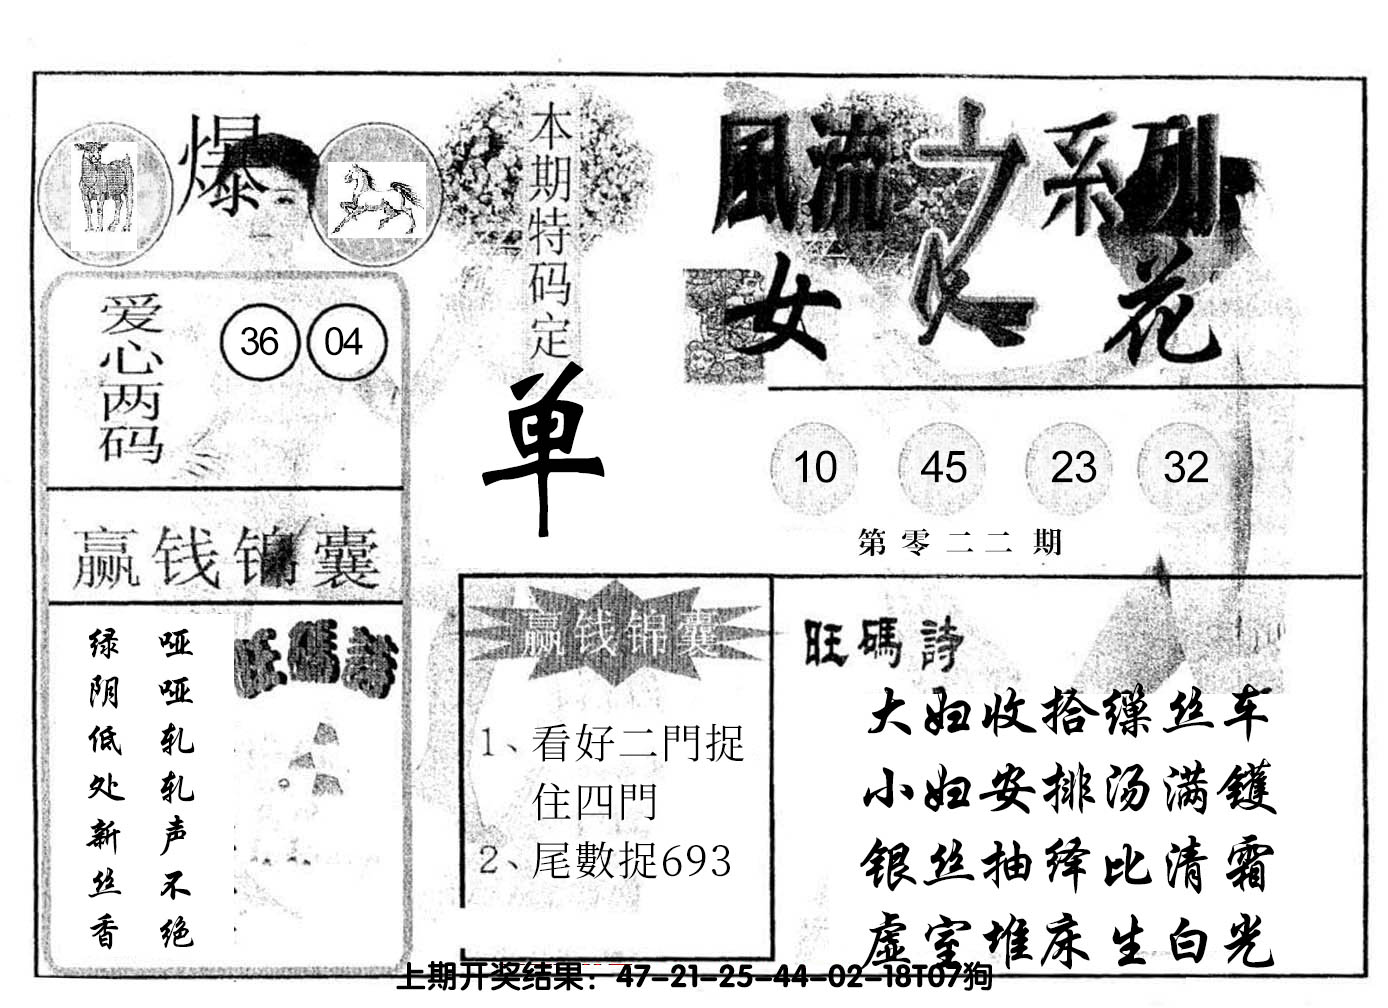 爆
本期特码定
单
風流之系列
女人花
爱心两码
36 04
10 45 23 32
第零二二期
赢钱锦囊
哑哑轧轧声不绝
绿阴低处新丝香
旺碼詩
赢钱锦囊
1、看好二門捉
住四門
2、尾數捉693
旺碼詩
大妇收拾缫丝车
小妇安排汤满镬
银丝抽绎比清霜
虚室堆床生白光
上期开奖结果：47-21-25-44-02-18T07狗